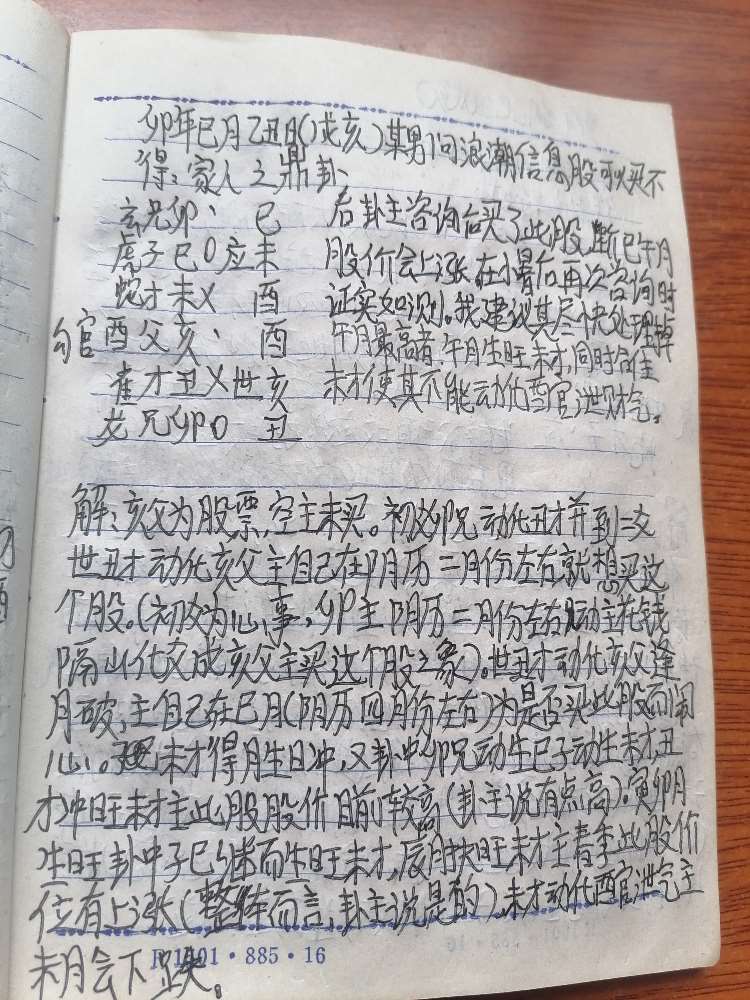 卯年巳月乙丑日(戌亥)某男问浪潮信息股可以买不
得:家人之鼎卦
玄兄卯、 巳 后卦主咨询后买了此股,断巳午月
虎子巳〇应未 股价会上涨,在小暑后再次咨询时
蛇才未X 酉 证实如测。我建议其尽快处理掉
勾官酉父亥、 酉 午月最高者,午月生旺未才,同时合住
雀才丑X世亥 未才使其不能动化酉官泄财气。
龙兄卯〇 丑
解:亥父为股票,空主未买。初爻卯兄动化丑才并到二爻
世丑才动化亥父主自己在阴历二月份左右就想买这
个股。(初爻为心事,卯主阴历二月份左右,动主花钱
隔山化爻成亥父主买这个股之象)。世丑才动化亥父逢
月破,主自己在巳月(阴历四月份左右)为是否买此股而闹
心。未才得月生日冲,又卦中卯兄动生巳子动生未才,丑
才冲旺未才主此股股价目前较高(卦主说有点高)。寅卯月
生旺卦中子巳继而生旺未才,辰月扶旺未才主春季此股价
位有上涨(整体而言,卦主说是的)。未才动化酉官泄气主
未月会下跌。
1101·885·16